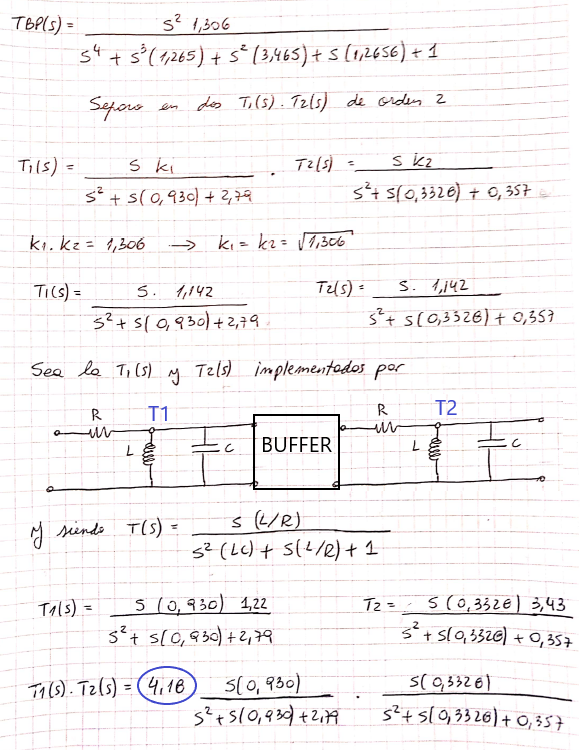 TBP(s) = s² 1,306 / s⁴ + s³(1,265) + s²(3,465) + s(1,2656) + 1
Separo en dos T₁(s) . T₂(s) de orden 2
T₁(s) = s k₁ / s² + s(0,930) + 2,79 . T₂(s) = s k₂ / s² + s(0,3328) + 0,357
k₁. k₂ = 1,306 → k₁ = k₂ = √1,306
T₁(s) = s. 1,142 / s² + s(0,930) + 2,79 T₂(s) = s. 1,142 / s² + s(0,3328) + 0,357
Sea la T₁(s) y T₂(s) implementados por
R T1 L C BUFFER R T2 L C
y siendo T(s) = s (L/R) / s² (LC) + s(L/R) + 1
T₁(s) = s (0,930) 1,22 / s² + s(0,930) + 2,79 T₂ = s (0,3328) 3,43 / s² + s(0,3328) + 0,357
T₁(s) . T₂(s) = 4,18 s(0,930) / s² + s(0,930) + 2,79 . s(0,3328) / s² + s(0,3328) + 0,357